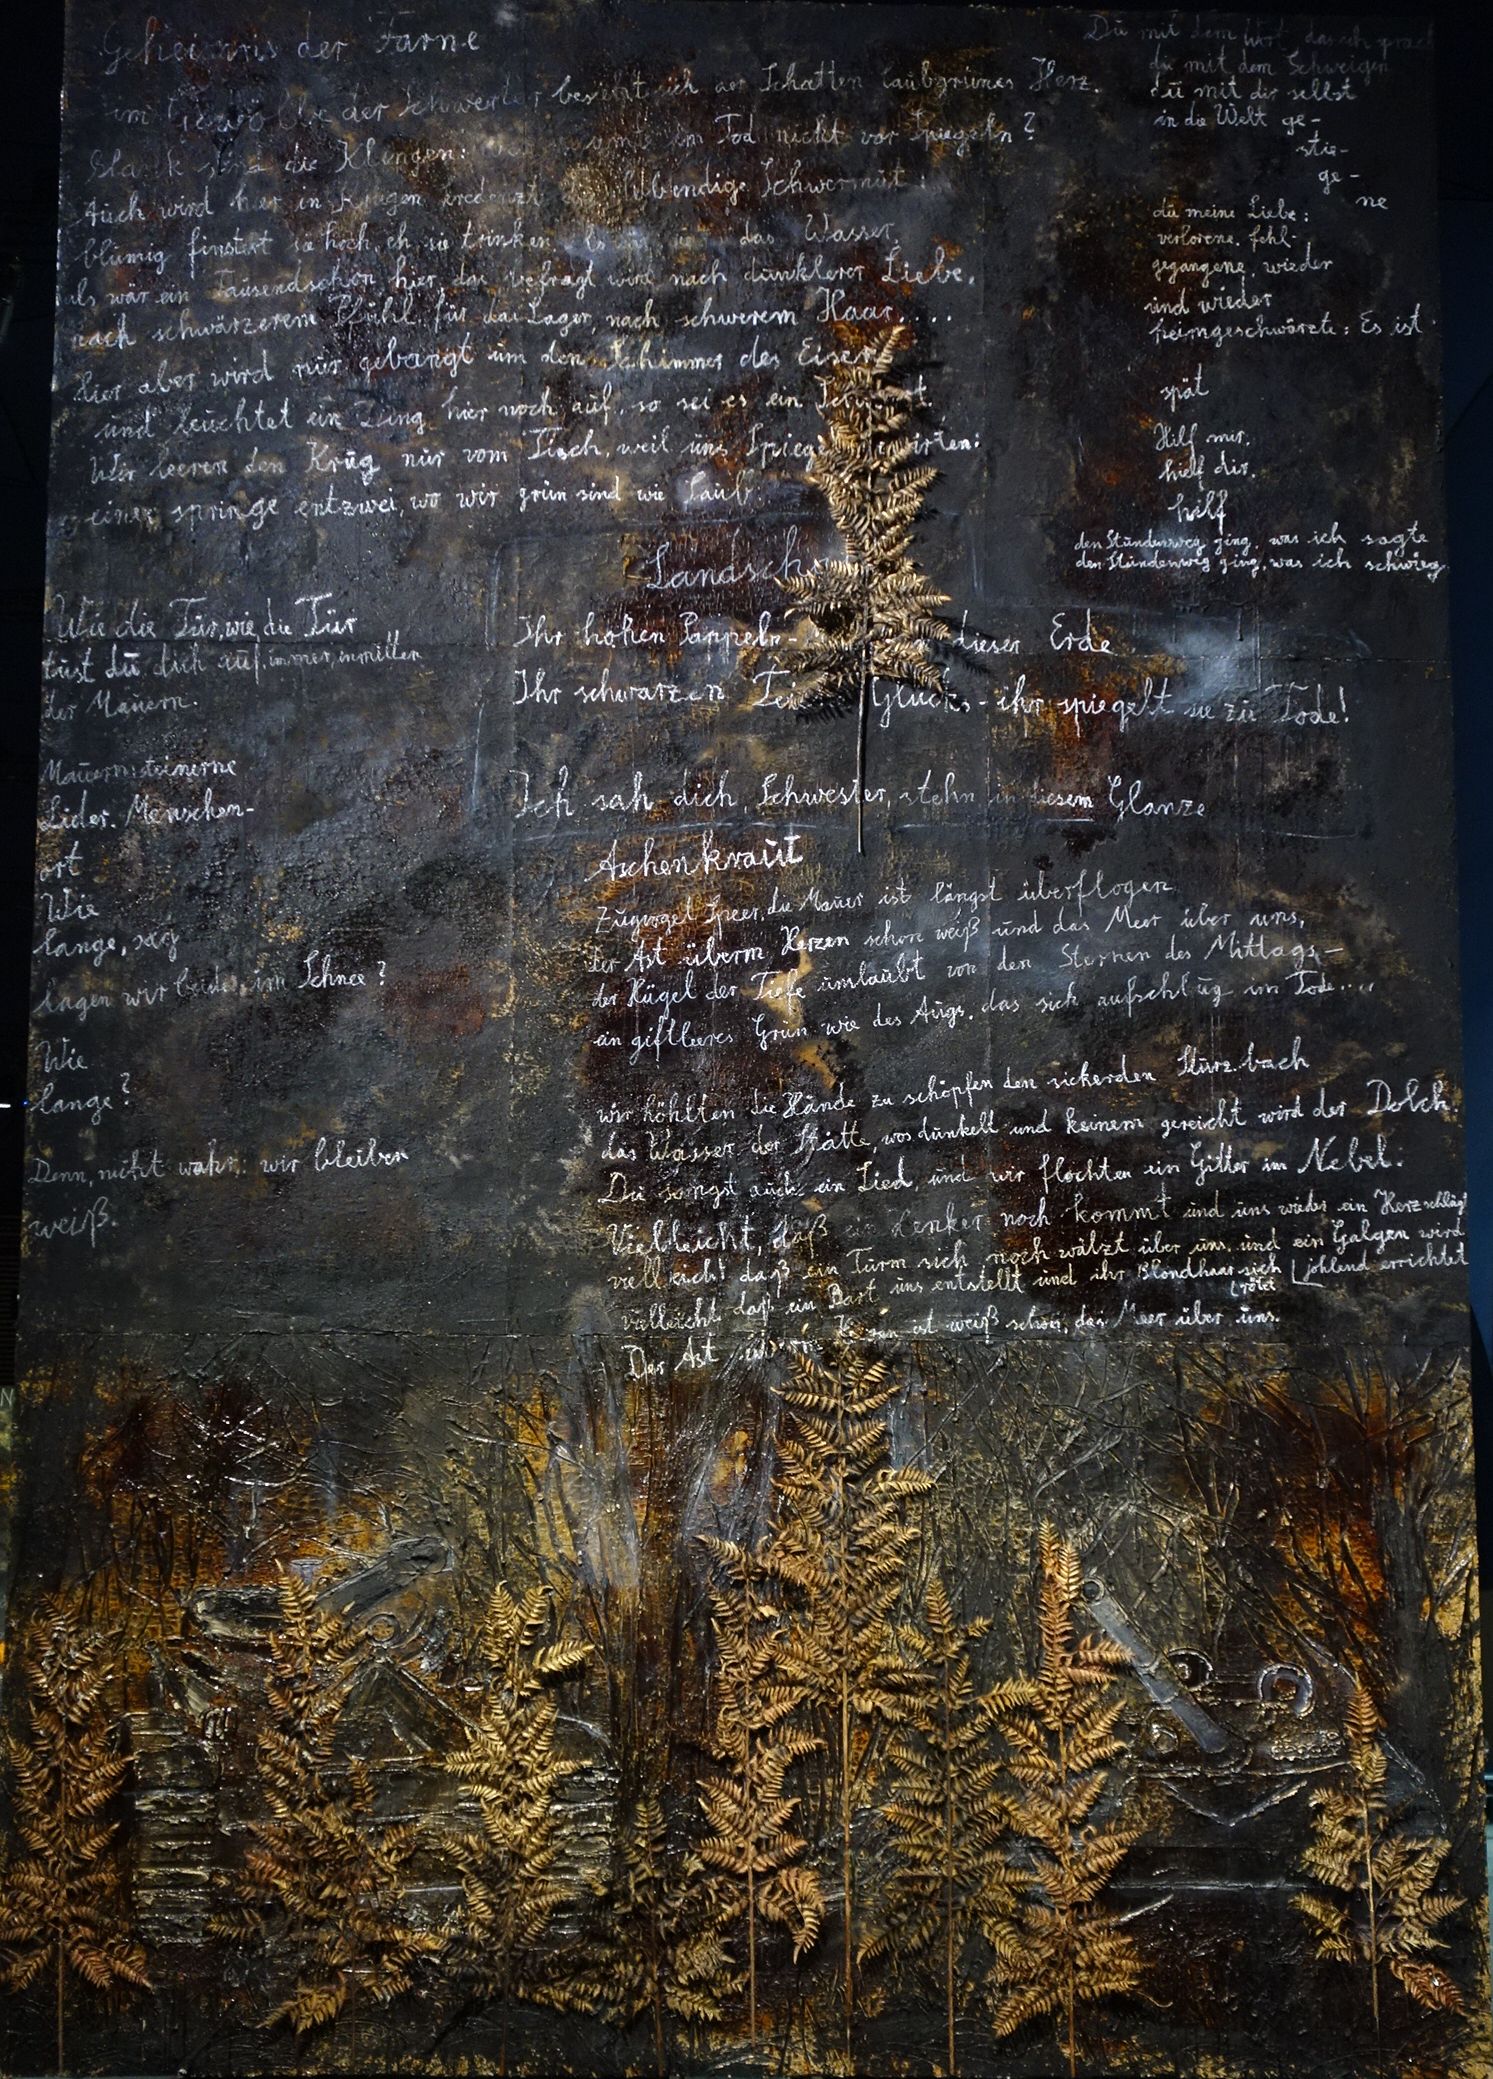 Geheimnis der Farne
im Gewölbe der Schwerter besieht sich der Schatten laubgrünes Herz.
Blank sind die Klingen: im Tod nicht vor Spiegeln?
Auch wird hier in Krügen kredenzt die lebendige Schwermut:
blumig finstert sie hoch, eh sie trinken, als das Wasser,
als wär ein Tausendschön hier, das befragt wird nach dunklerer Liebe,
nach schwärzerem Pfühl für das Lager, nach schwerem Haar....
hier aber wird nur gebangt um den Schimmer des Eisens
und leuchtet ein Ding hier noch auf, so sei es ein
Wir leeren den Krug nur vom Tisch, weil uns Spiegel bewirten:
einer springe entzwei, wo wir grün sind wie Laub.
Du mit dem Wort, das ich sprach
du mit dem Schweigen
du mit dir selbst
in die Welt ge-
stie-
ge-
ne
du meine Liebe:
verlorene, fehl-
gegangene, wieder
und wieder
heimgeschwärzte: Es ist
spät
Hilf mir,
hielf dir,
hilf
den Stundenweg ging, was ich sagte
den Stundenweg ging, was ich schwieg.
Wie die Tür, wie die Tür
tust du dich auf, immer, inmitten
der Mauern.
Mauern, steinerne
Lider. Menschen-
ort
Wie
lange, sag
lagen wir beide, im Schnee?
Wie
lange?
Denn, nicht wahr: wir bleiben
weiß.
Landsch
Ihr hohen Pappeln - dieser Erde
Ihr schwarzen Glücks - ihr spiegelt sie zu Tode!
Ich sah dich, Schwester, stehn in diesem Glanze
Aschenkraut
Zugvogel Speer, die Mauer ist längst überflogen
der Ast überm Herzen schon weiß und das Meer über uns,
der Hügel der Tiefe umlaubt von den Sternen des Mittags -
ein giftleeres Grün wie des Augs, das sich aufschlug im Tode....
wir höhlten die Hände zu schöpfen den sickerden Sturzbach
das Wasser der Stätte, wos dunkelt und keinem gereicht wird der Dolch.
Du sangst auch ein Lied, und wir flochten ein Gitter im Nebel:
Vielleicht, daß ein Henker noch kommt und uns wieder ein Herz schlägt
vielleicht daß ein Turm sich noch wälzt über uns, und ein Galgen wird
johlend errichtet
vielleicht daß ein Bart uns entstellt und ihr Blondhaar sich
rötet
Der Ast überm Herzen ist weiß schon, das Meer über uns.